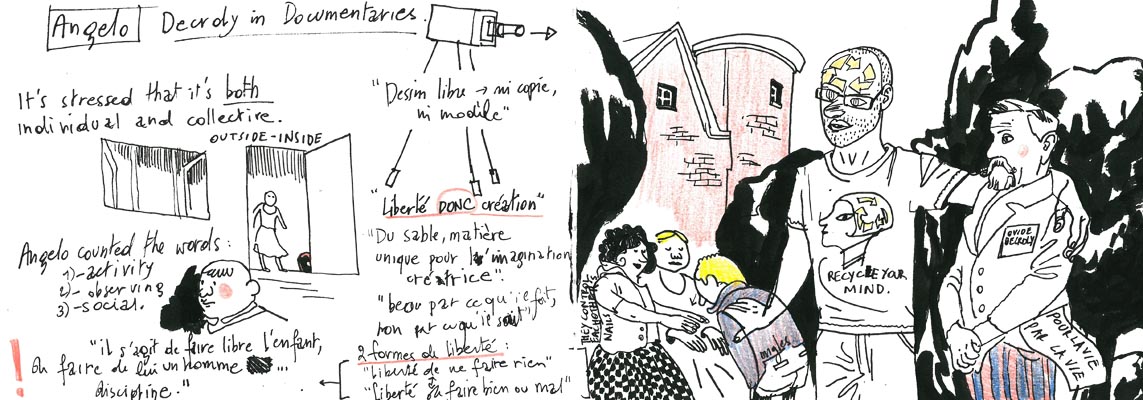 Angelo Decroly in Documentaries.
It's stressed that it's both
individual and collective.
OUTSIDE-INSIDE
Angelo counted the words:
1)-activity
2)- observing
3)-social.
"il s'agit de faire libre l'enfant,
faire de lui un homme ...
discipline."
"Dessin libre → ni copie,
ni modèle"
"liberté DONC création"
"Du sable, matière
unique pour imagination
créatrice".
"beau par ce qu'il fait,
non par ce qu'il sait"
2 formes de liberté:
"liberté de ne faire rien"
"liberté faire bien ou mal"
THEY CONTROL
EACHOTHER'S
NAILS
ongles
RECYCLE YOUR
MIND.
OVIDE
DECROLY
POUR LA VIE
PAR LA VIE